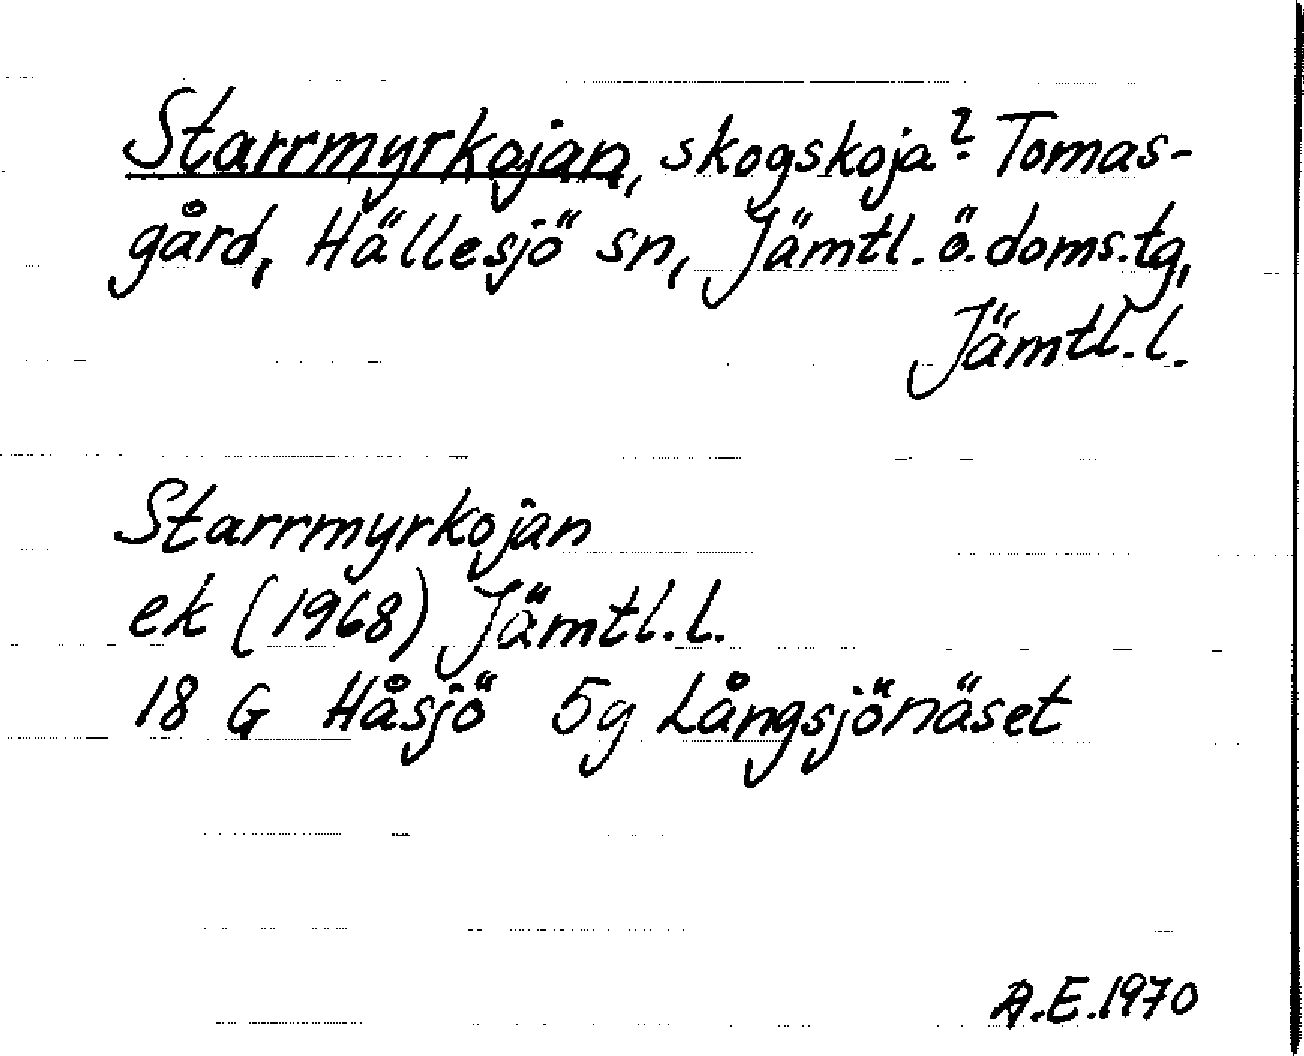 Starrmyrkojan, skogskoja? Tomas-
gård, Hällesjö sn, Jämtl. ö. doms.tg,
Jämtl.l.
Starrmyrkojan
ek (1968) Jämtl.l.
18 G Håsjö 5g Långsjönäset
A.E.1970